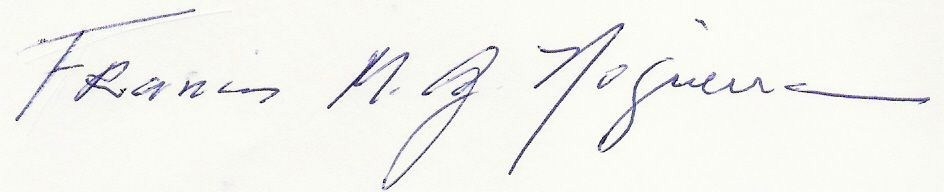 Francis M. G. Noguerra